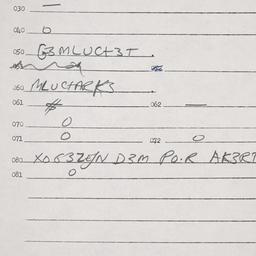 030 —
040 0
050 G3MLUCT3T.
060 MLUCTARK3
061 # 062 —
070 0
071 0 072 0
080 D3M PO.R AK3RT
081 0